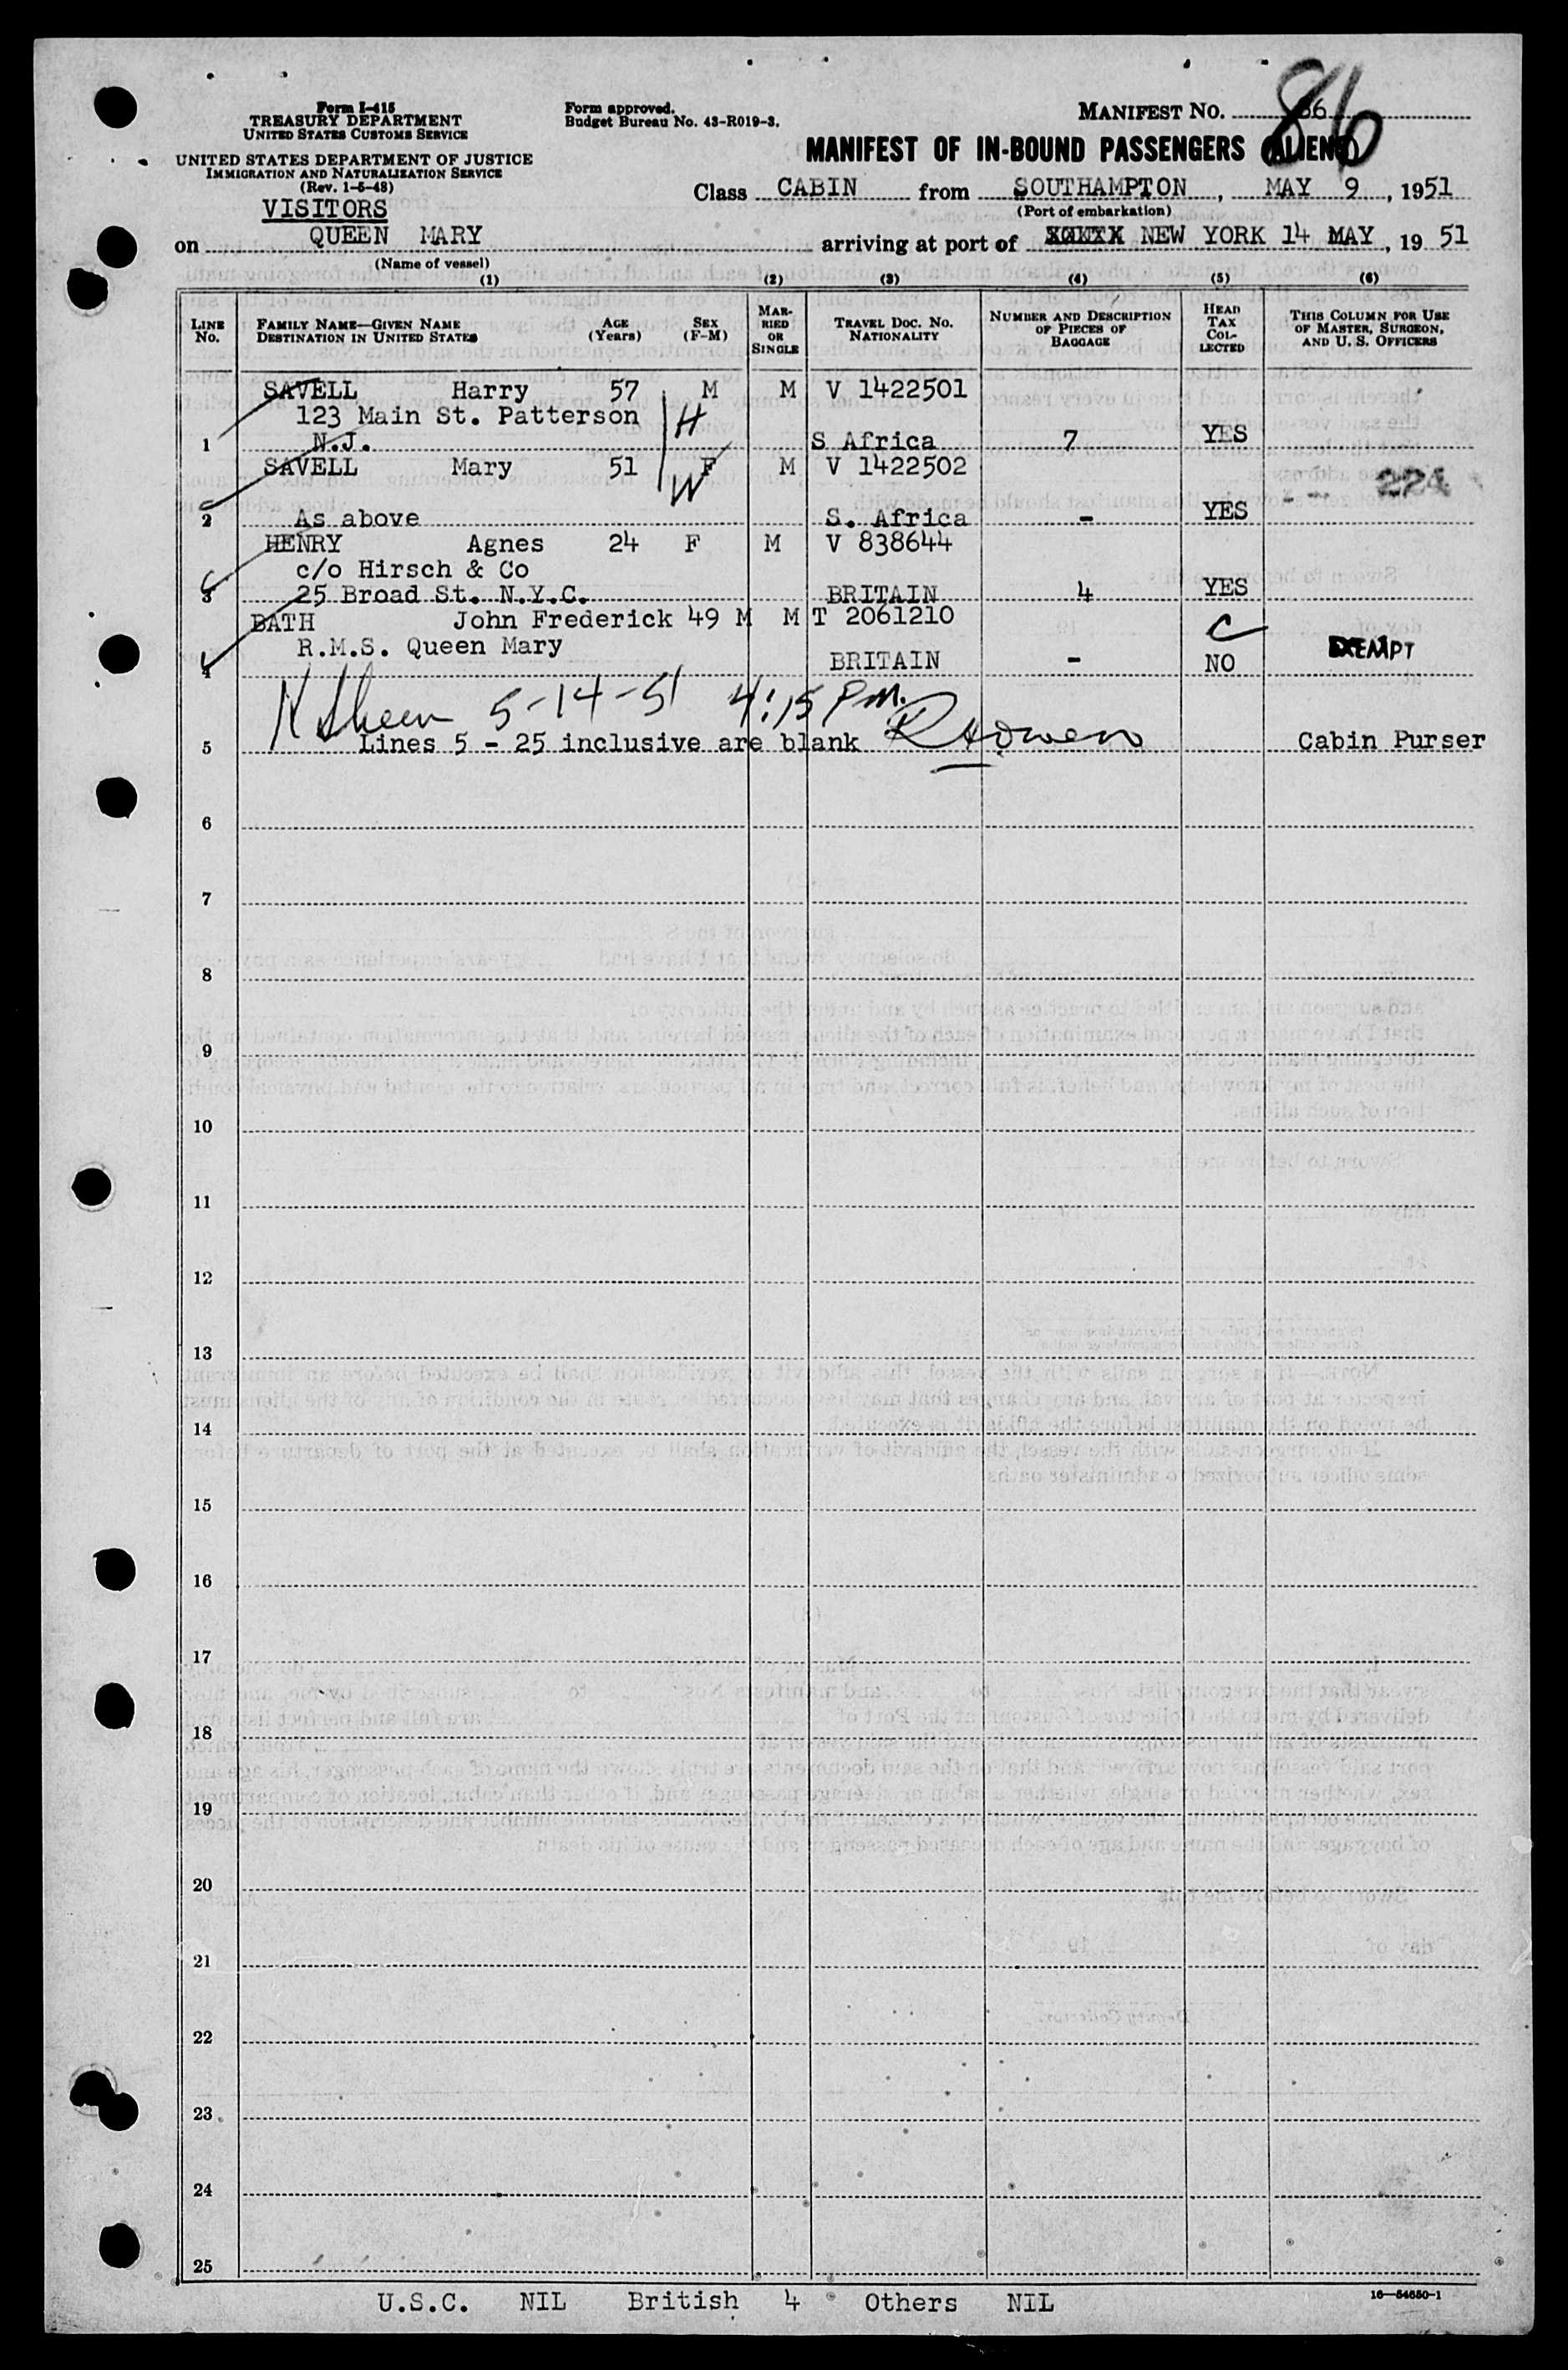 Form I-415
TREASURY DEPARTMENT
UNITED STATES CUSTOMS SERVICE
UNITED STATES DEPARTMENT OF JUSTICE
IMMIGRATION AND NATURALIZATION SERVICE
(Rev. 1-5-48)
Form approved.
Budget Bureau No. 43-R019-3.
MANIFEST NO. 86
86
MANIFEST OF IN-BOUND PASSENGERS (ALIENS)
Class CABIN from SOUTHAMPTON, MAY 9, 1951
(Port of embarkation)
VISITORS
on QUEEN MARY arriving at port of NEW YORK 14 MAY, 19 51
(Name of vessel)
(1) (2) (3) (4) (5) (6)
LINE No.
FAMILY NAME—GIVEN NAME
DESTINATION IN UNITED STATES
AGE (Years)
SEX (F-M)
MARRIED OR SINGLE
TRAVEL DOC. NO. NATIONALITY
NUMBER AND DESCRIPTION OF PIECES OF BAGGAGE
HEAD TAX COLLECTED
THIS COLUMN FOR USE OF MASTER, SURGEON, AND U. S. OFFICERS
SAVELL Harry 57 M M V 1422501
123 Main St. Patterson H
1 N.J. S Africa 7 YES
SAVELL Mary 51 F M V 1422502
W 224
2 As above S. Africa - YES
HENRY Agnes 24 F M V 838644
c/o Hirsch & Co
3 25 Broad St. N.Y.C. BRITAIN 4 YES
BATH John Frederick 49 M M T 2061210
R.M.S. Queen Mary
4 BRITAIN - NO EXEMPT
5-14-51 4:15 P.M.
5 Lines 5 - 25 inclusive are blank Cabin Purser
6
7
8
9
10
11
12
13
14
15
16
17
18
19
20
21
22
23
24
25
U.S.C. NIL British 4 Others NIL
16—54650-1